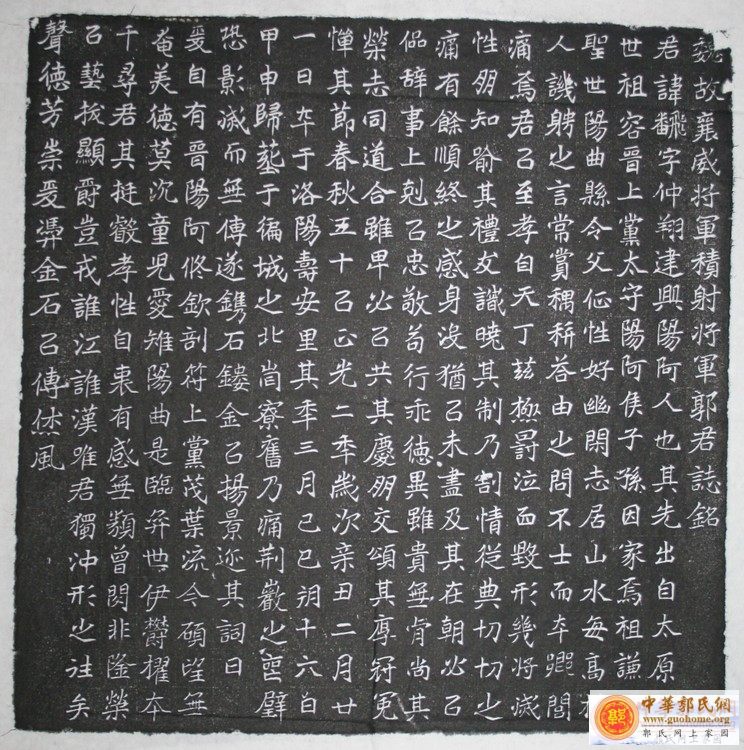 魏故襄威將軍積射將軍郭君誌銘
君諱翻字仲翔建興陽阿人也其先出自太原
世祖容晉上黨太守陽阿侯子孫因家焉祖謙
聖世陽曲縣令父恡性好幽閑志居山水每高
人譏躬之言常賞稱荅由之問不士而卒遐
痛焉君㠯至孝自天丁玆極罸泣血毀形幾將滅
性朋知喻其禮友讖曉其制乃割情從典切切之
痛有餘順終之感身沒猶㠯未盡及其在朝必㠯
侣辝事上剋㠯忠敬苟行乖德異雖貴無肯尚其
榮志同道合雖卑必㠯共其慶朋交頌其厚冠冕
憚其節春秋五十㠯正光二秊歲次亲丑二月廿
一日卒于洛陽壽安里其秊三月己巳朔十六日
甲申歸塟于徧城之北尚寮舊乃痛荆巖之璧
恐影滅而無傳遂鐫石鏤金㠯揚景迹其詞曰
爰自有晉陽阿俢欽剖符上黨茂葉流今碩望無
奄美德莫沉童児愛雉陽曲是臨弈世伊欝擢本
千尋君其挺叡孝性自衷有感無類曾閔非隆榮
㠯藝拔顯爵豈戎誰江誰漢唯君獨沖形之往矣
聲德芳崇爰憑金石㠯傳烋風
中華郭氏網
www.guohome.com
郭氏网上家园